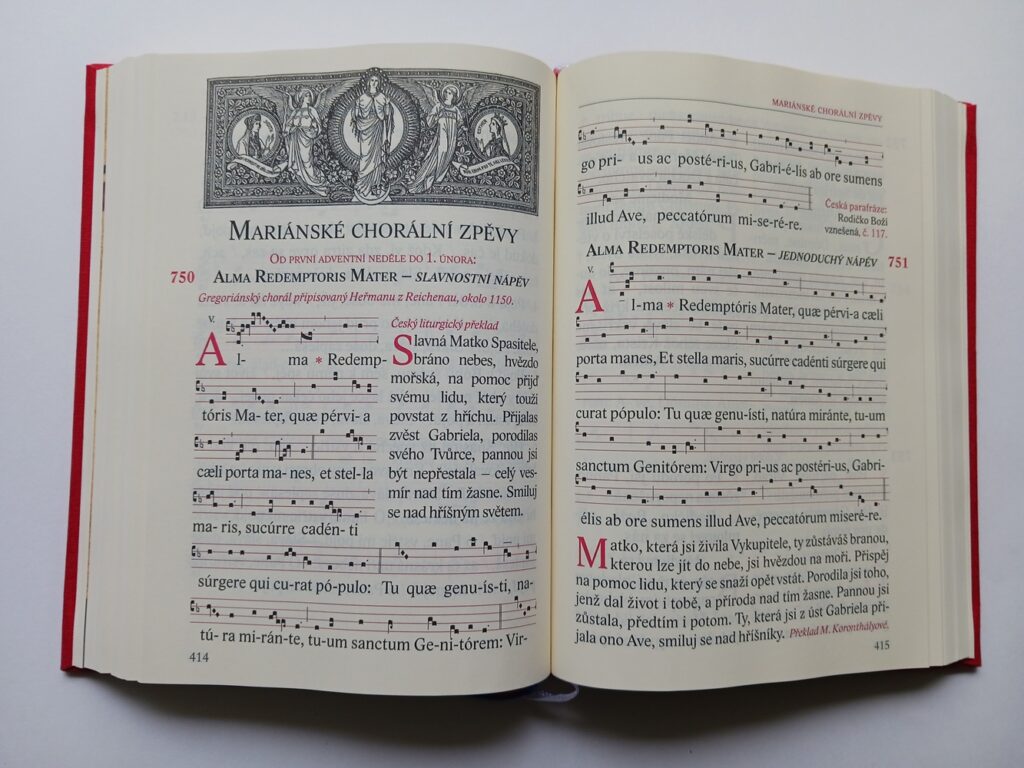 MARIÁNSKÉ CHORÁLNÍ ZPĚVY
OD PRVNÍ ADVENTNÍ NEDĚLE DO 1. ÚNORA:
750 ALMA REDEMPTORIS MATER – SLAVNOSTNÍ NÁPĚV
Gregoriánský chorál připisovaný Heřmanu z Reichenau, okolo 1150.
V.
Al- ma * Redemp-
tóris Ma- ter, quæ pérvi-a
cæli porta ma-nes, et stel-la
ma- ris, sucúrre cadén- ti
Český liturgický překlad
Slavná Matko Spasitele,
bráno nebes, hvězdo
mořská, na pomoc přijď
svému lidu, který touží
povstat z hříchu. Přijalas
zvěst Gabriela, porodilas
svého Tvůrce, pannou jsi
být nepřestala – celý ves-
mír nad tím žasne. Smiluj
se nad hříšným světem.
súrgere qui cu-rat pó-pulo: Tu quæ genu-ís-ti, na-
tú- ra mi-rán-te, tu-um sanctum Ge-ni-tórem: Vir-
414
MARIÁNSKÉ CHORÁLNÍ ZPĚVY
go pri- us ac posté-ri-us, Gabri-é-lis ab ore sumens
illud Ave, peccatórum mi-se-ré-re.
Česká parafráze:
Rodičko Boží
vznešená, č. 117.
ALMA REDEMPTORIS MATER – JEDNODUCHÝ NÁPĚV 751
V.
Al-ma * Redemptóris Mater, quæ pérvi-a cæli
porta manes, Et stella maris, sucúrre cadénti súrgere qui
curat pópulo: Tu quæ genu-ísti, natúra miránte, tu-um
sanctum Genitórem: Virgo pri-us ac postéri-us, Gabri-
élis ab ore sumens illud Ave, peccatórum miseré-re.
Matko, která jsi živila Vykupitele, ty zůstáváš branou,
kterou lze jít do nebe, jsi hvězdou na moři. Přispěj
na pomoc lidu, který se snaží opět vstát. Porodila jsi toho,
jenž dal život i tobě, a příroda nad tím žasne. Pannou jsi
zůstala, předtím i potom. Ty, která jsi z úst Gabriela při-
jala ono Ave, smiluj se nad hříšníky. Překlad M. Koronthályové.
415